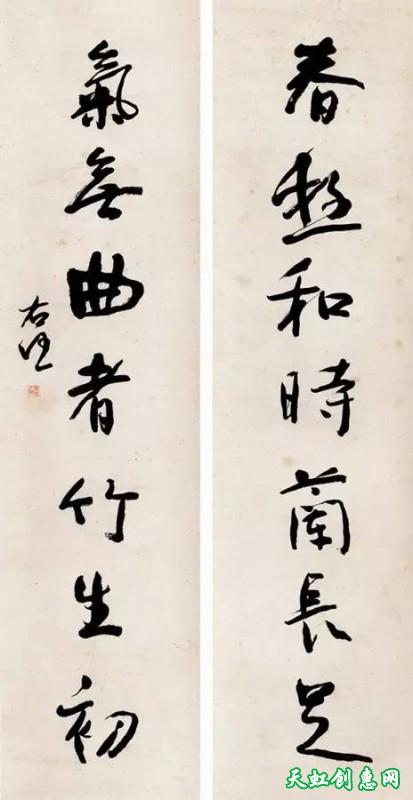 春和時蘭長足
氣無曲者竹生初
右任
天虹创惠网